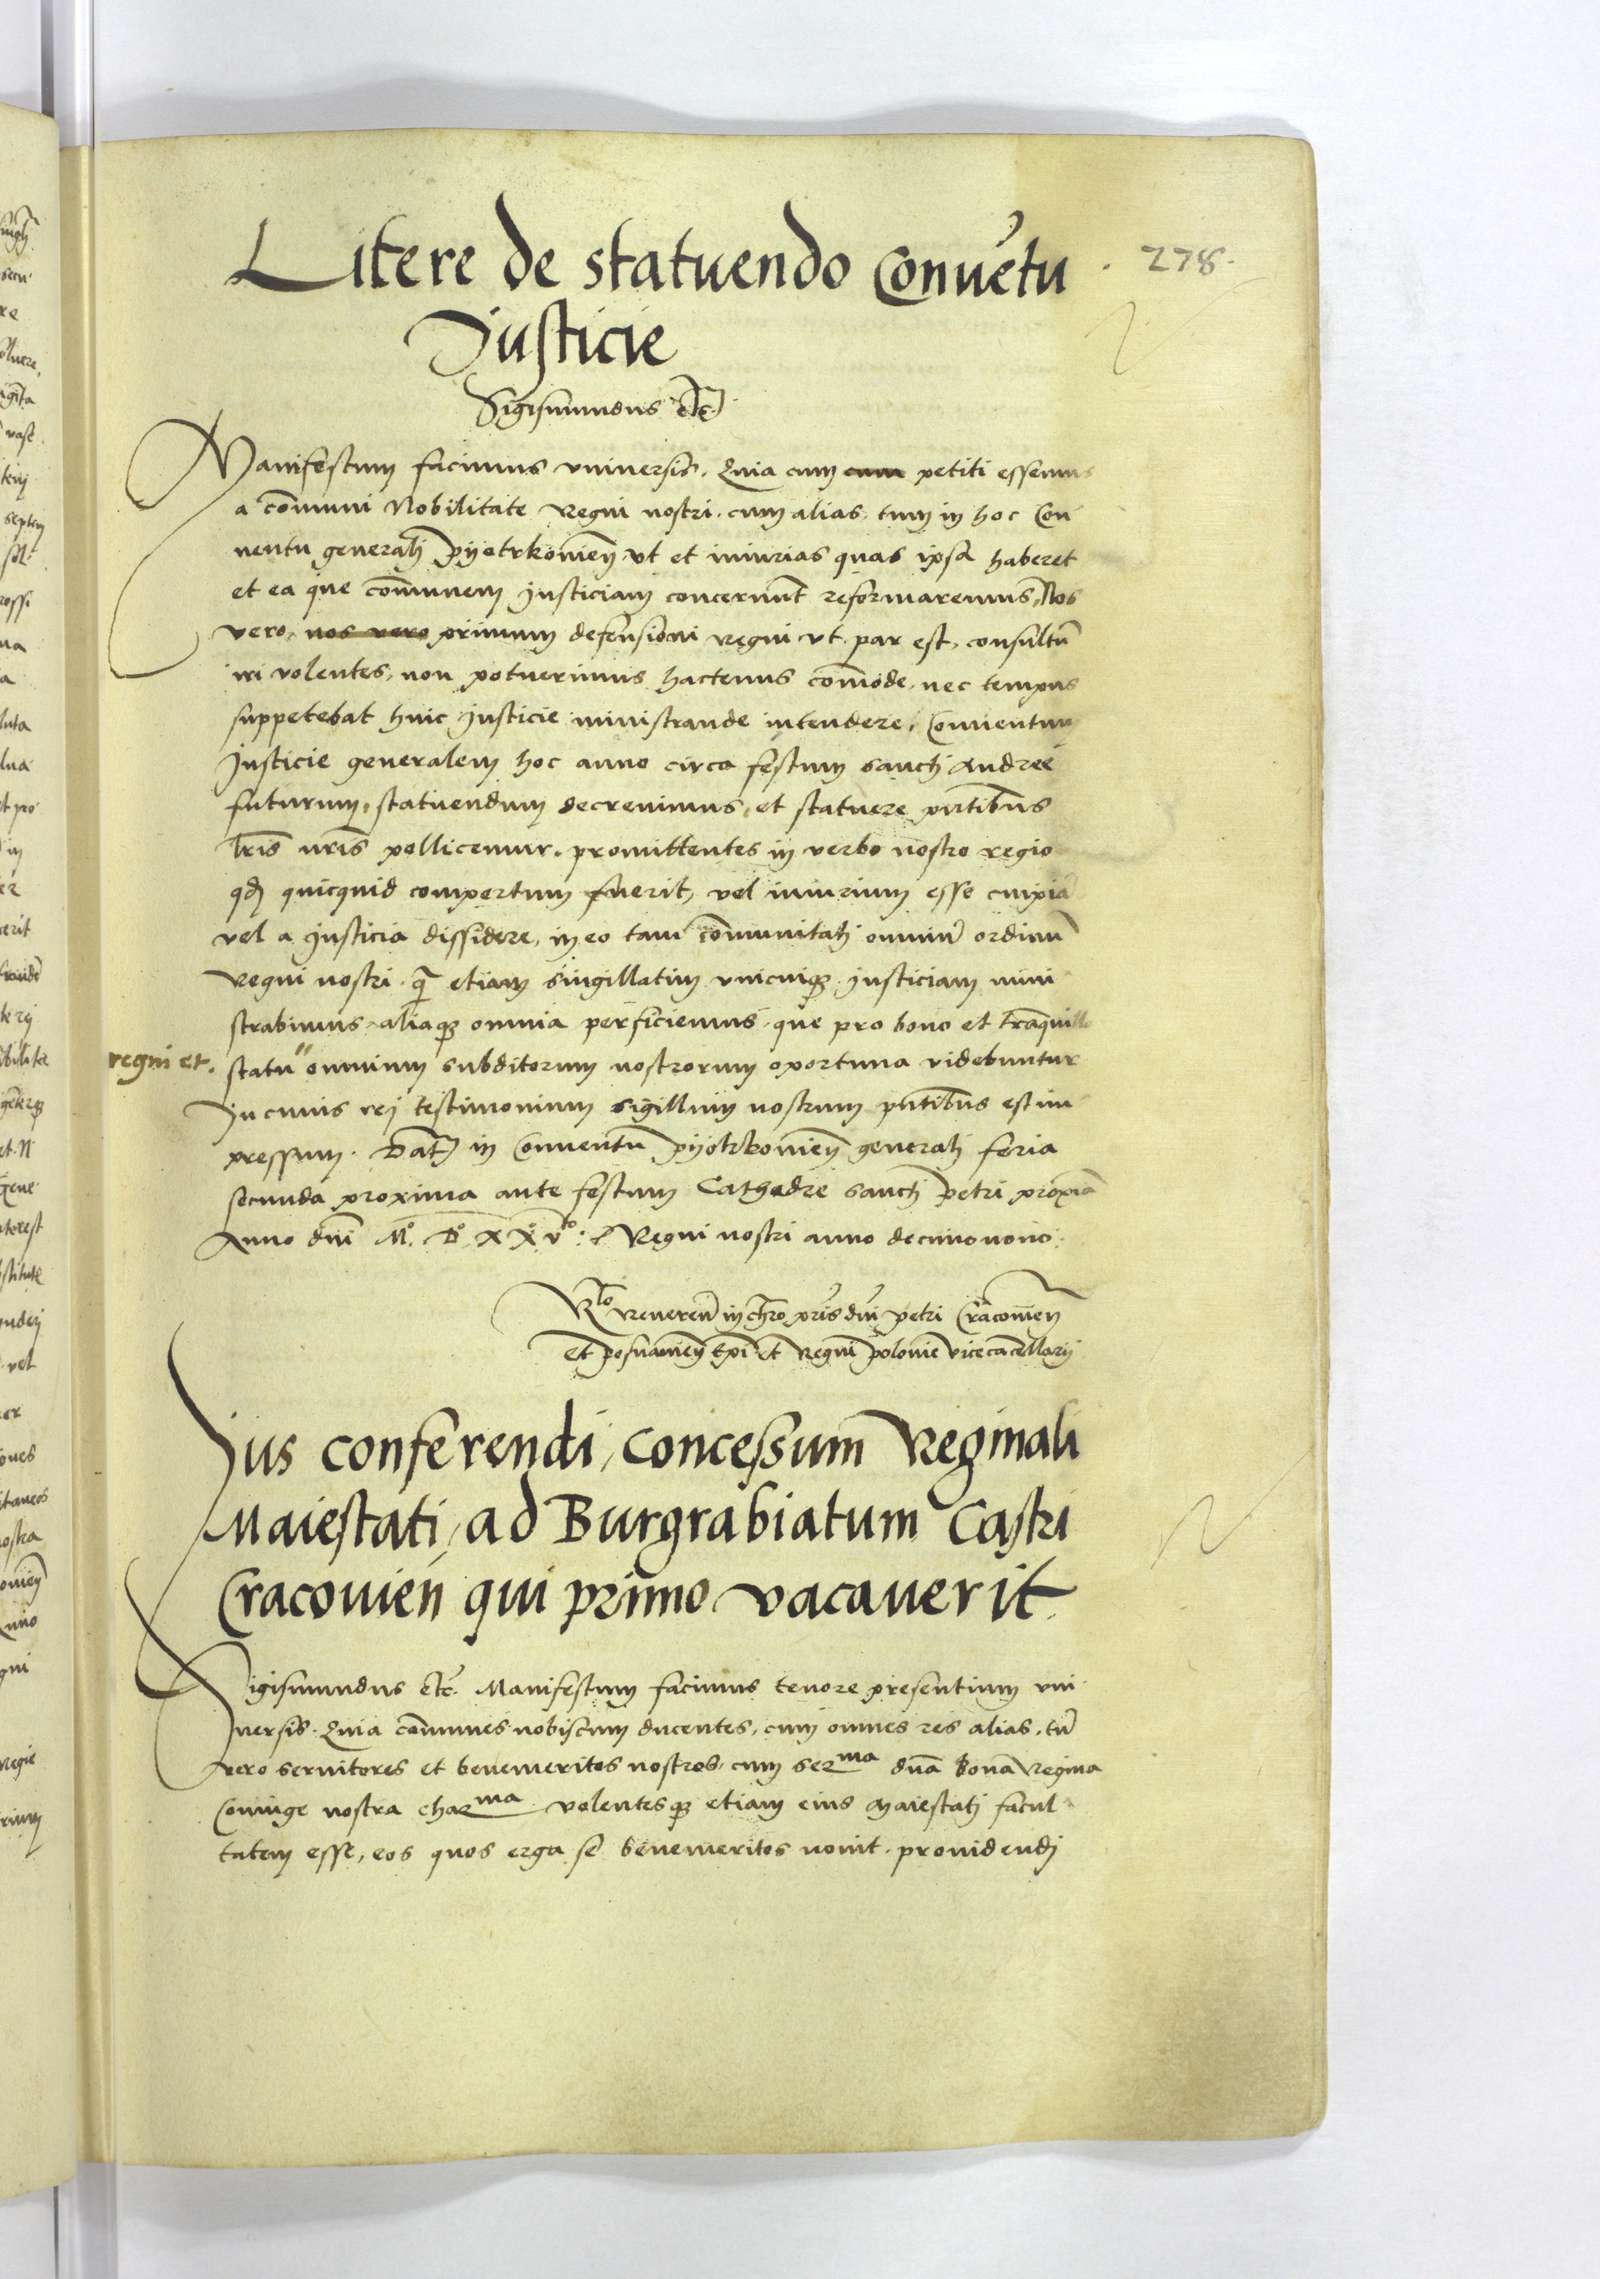 Litere de statuendo Conuētu
278.
Justicie
Sigismundus etc̄
Manifestum facimus vniuersis. Quia cum cum petiti essemus
a cōmuni Nobilitate regni nostri. cum alias. tum in hoc Con
uentu generali Pyotrkovien̄ vt et iniurias quas ipsa haberet
et ea que cōmunem Justiciam concernūt reformaremus, Nos
vero, nos vero primum defensioni regni vt par est, consultū
iri volentes, non potuerimus hactenus cōmode, nec tempus
suppetebat huic Justicie ministrande intendere, Conuentum
Justicie generalem hoc anno circa festum sancti Andree
futurum, statuendum decreuimus, et statuere pn̄tibus
lr̄is nr̄is pollicemur. promittentes in verbo nostro regio
qd̄ quicquid compertum fuerit, vel iniurium esse cuipiā
vel a Justicia dissidere, in eo tam cōmunitati omniū ordinū
regni nostri. q̄ etiam singillatim vnicuiqꝫ Justiciam mini
strabimus, aliaqꝫ omnia perficiemus, que pro bono et trāquillo
regni et. statu" omnium subditorum nostrorum oportuna videbuntur
In cuius rei testimonium sigillum nostrum pn̄tibus est im
pressum. Dat̄ in Conuentu Pyotrkovien̄ generali feria
secunda proxima ante festum Cathedre sancti Petri proximā
Anno dn̄i Mº Dº XXº vto: Regni nostri anno decimonono.
Rlo reueren̄ in chro pr̄is dn̄i Petri Cracovien̄
Et Posnanien̄ Ep̄i et Regni Polonie vicecācellarij
Jus conferendi, concessum Reginali
Maiestati, ad Burgrabiatum Castri
Cracouien̄ qui primo vacauerit
Sigismundus etc̄. Manifestum facimus tenore presentium vni
uersis. Quia cōmunes nobiscum ducentes, cum omnes res alias, tū
vero seruitores et benemeritos nostros, cum serma dn̄a bona Regina
Coniuge nostra charma volentesqꝫ etiam eius Maiestati facul
tatem esse, eos quos erga se benemeritos nouit. prouidendi